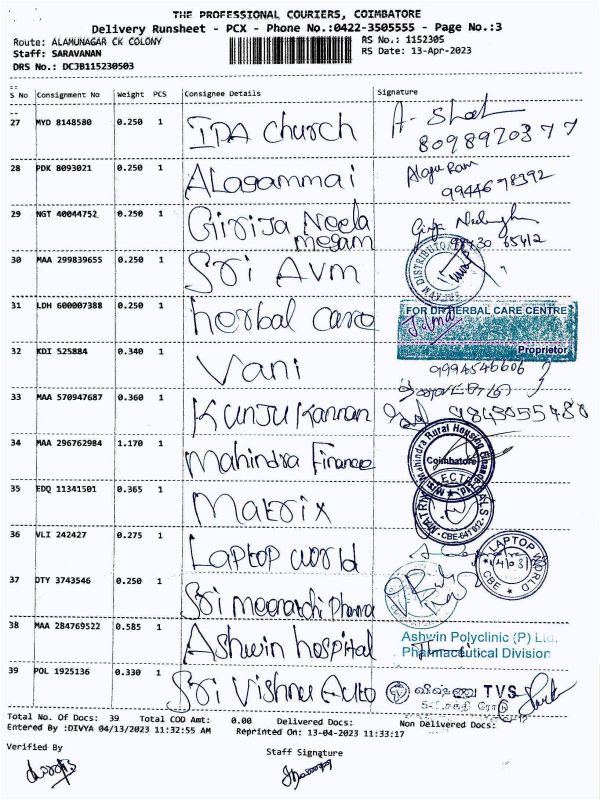 THE PROFESSIONAL COURIERS, COIMBATORE
Delivery Runsheet - PCX - Phone No.:0422-3505555 - Page No.:3
Route: ALAMUNAGAR CK COLONY RS No.: 1152305
Staff: SARAVANAN RS Date: 13-Apr-2023
DRS No.: DCJB115230503
S No Consignment No Weight PCS Consignee Details Signature
27 MYD 8148580 0.250 1 IPA Church A- Shok
8098920377
28 PDK 8093021 0.250 1 ALagammai Alagu Ram
9944678392
29 NGT 40044752 0.250 1 Girija Neela
megam
30 MAA 299839655 0.250 1 Sri AVM
31 LDH 600007388 0.250 1 herbal care FOR DR HERBAL CARE CENTRE
Proprietor
32 KDI 525884 0.340 1 Vani 9994546606
33 MAA 570947687 0.360 1 Kunju Kannan
34 MAA 296762984 1.170 1 Mahindra Finance Mahindra Rural Housing Finance Ltd.
Coimbatore
35 EDQ 11341501 0.365 1 Matrix
36 VLI 242427 0.275 1 Laptop world LAPTOP WORLD
CBE
37 OTY 3743546 0.250 1 Sri meenatchi Pharma
38 MAA 284769522 0.585 1 Ashwin hospital Ashwin Polyclinic (P) Ltd.
Pharmaceutical Division
39 POL 1925136 0.330 1 Sri Vishnu Auto விஷ்ணு TVS
Total No. Of Docs: 39 Total COD Amt: 0.00 Delivered Docs: Non Delivered Docs:
Entered By :DIVYA 04/13/2023 11:32:55 AM Reprinted On: 13-04-2023 11:33:17
Verified By Staff Signature